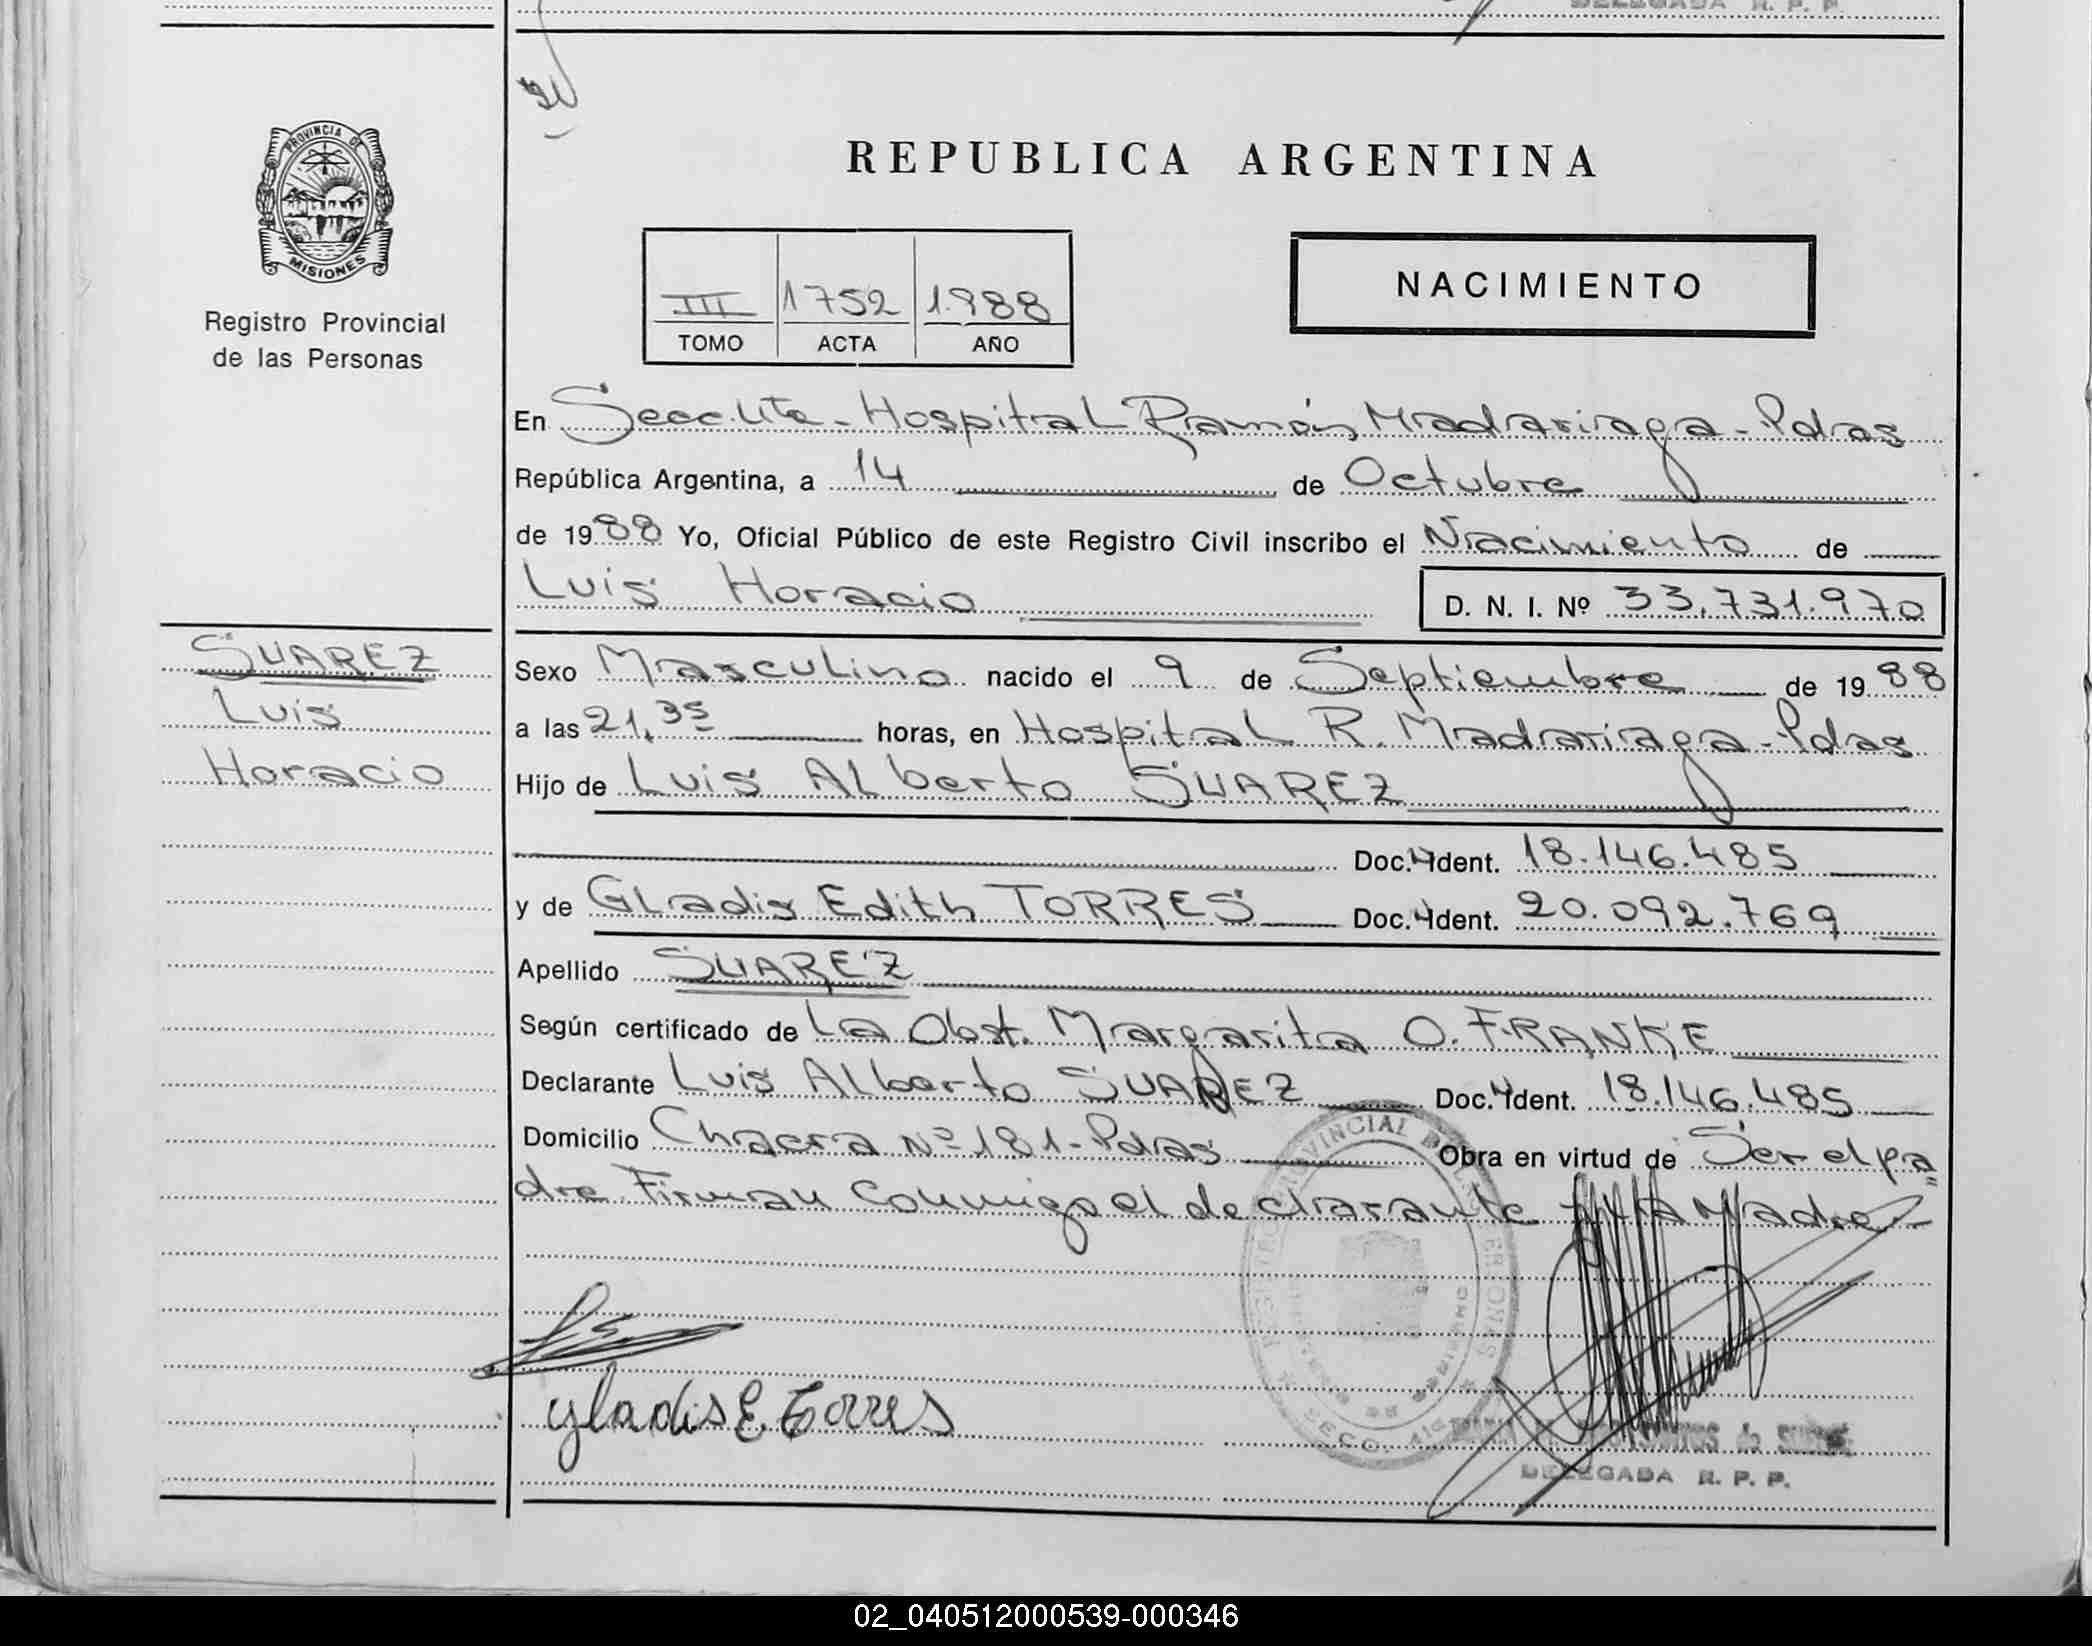 DELEGADA R. P. P.
REPUBLICA ARGENTINA
PROVINCIA DE
MISIONES
Registro Provincial
de las Personas
III 1752 1.988
TOMO ACTA AÑO
NACIMIENTO
En Secc. Hospital Ramón Madariaga - Pdas
República Argentina, a 14 de Octubre
de 1988 Yo, Oficial Público de este Registro Civil inscribo el Nacimiento de
Luis Horacio D. N. I. Nº 33.731.970
SUAREZ
Luis
Horacio
Sexo Masculino nacido el 9 de Septiembre de 1988
a las 21.35 horas, en Hospital R. Madariaga - Pdas
Hijo de Luis Alberto SUAREZ
Doc. Ident. 18.146.485
y de Gladis Edith TORRES Doc. Ident. 20.092.769
Apellido SUAREZ
Según certificado de La Obst. Margarita O. FRANKE
Declarante Luis Alberto SUAREZ Doc. Ident. 18.146.485
Domicilio Chacra Nº 181 - Pdas Obra en virtud de Ser el pa=
dre Firman conmigo el declarante y la Madre
Gladis E. Torres
DELEGADA R. P. P.
02_040512000539-000346